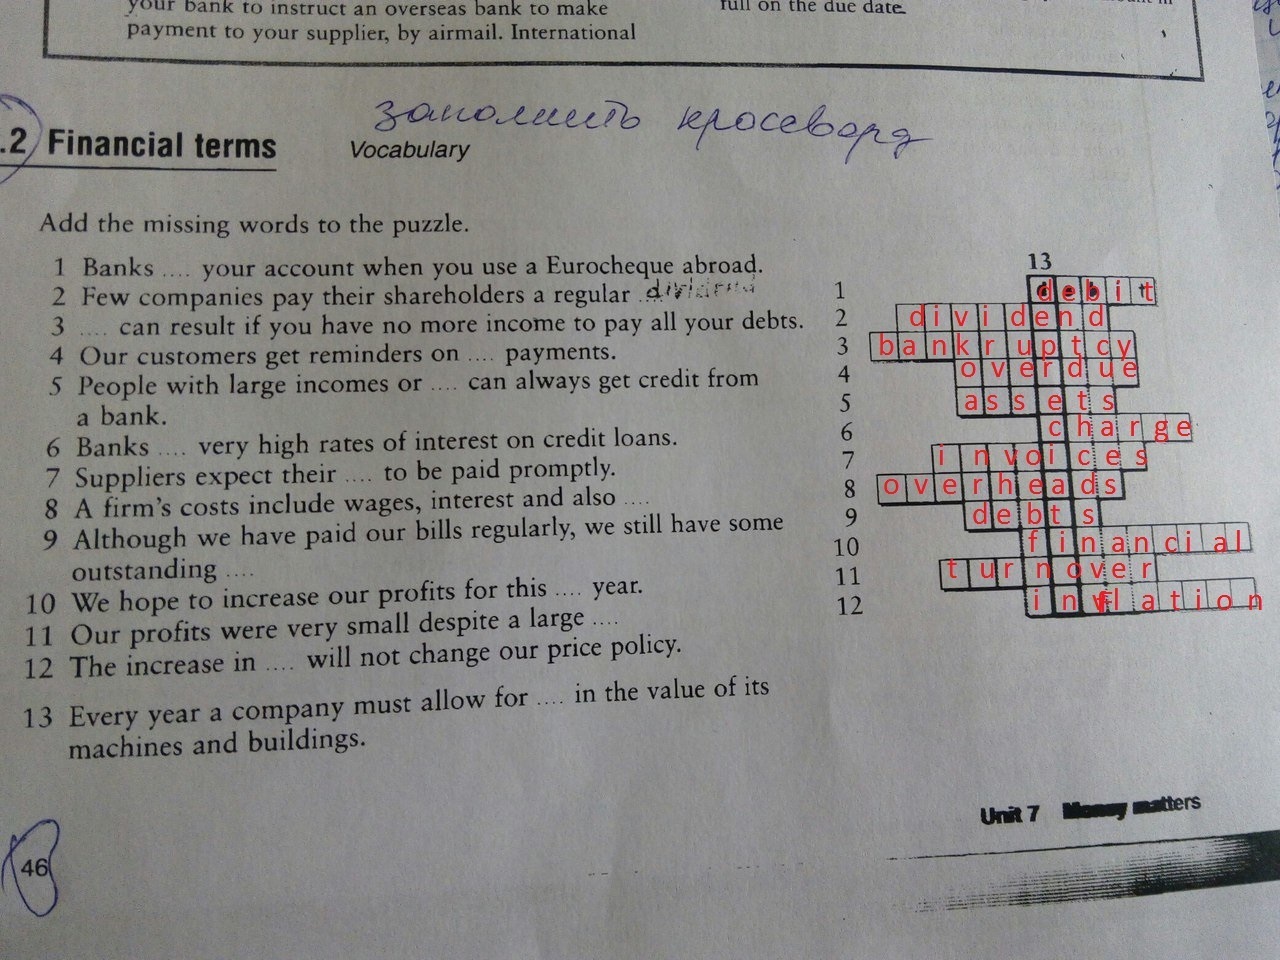 your bank to instruct an overseas bank to make
payment to your supplier, by airmail. International
full on the due date.
заполнить кроссворд
.2 Financial terms
Vocabulary
Add the missing words to the puzzle.
1 Banks .... your account when you use a Eurocheque abroad.
2 Few companies pay their shareholders a regular .... dividend
3 .... can result if you have no more income to pay all your debts.
4 Our customers get reminders on .... payments.
5 People with large incomes or .... can always get credit from
a bank.
6 Banks .... very high rates of interest on credit loans.
7 Suppliers expect their .... to be paid promptly.
8 A firm's costs include wages, interest and also ....
9 Although we have paid our bills regularly, we still have some
outstanding ....
10 We hope to increase our profits for this .... year.
11 Our profits were very small despite a large ....
12 The increase in .... will not change our price policy.
13 Every year a company must allow for .... in the value of its
machines and buildings.
13
1 debit
2 dividend
3 bankruptcy
4 overdue
5 assets
6 charge
7 invoices
8 overheads
9 debts
10 financial
11 turnover
12 inflation
Unit 7 Money matters
46